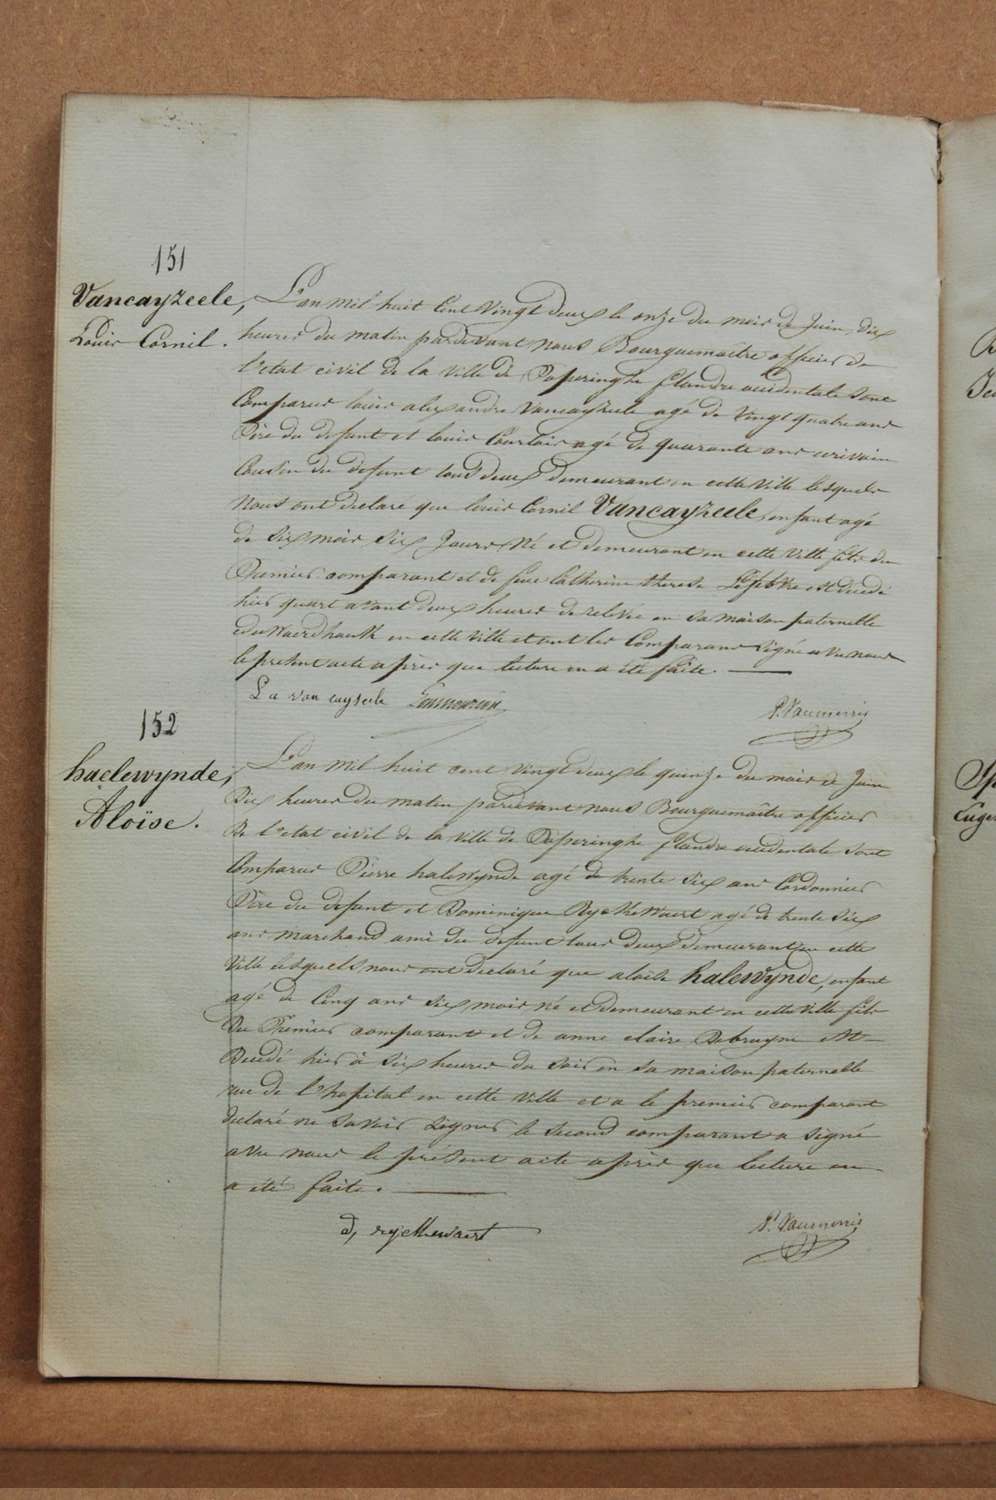 151
Vancayzeele,
Louis Cornil.
L'an mil huit Cent Vingt deux le onze du mois de Juin, dix
heures du matin pardevant nous Bourguemaître officier de
l'etat civil de la Ville de Poperinghe flandre occidentale sont
Comparus louis alexandre Vancayzeele agé de Vingt quatre ans
Père du defunt et louis Courtois agé de quarante ans ecrivain
Cousin du defunt tous deux demeurant en cette Ville lesquels
Nous ont declaré que louis Cornil Vancayzeele, enfant agé
de six mois six Jours Né et demeurant en cette Ville fils du
Premier comparant et de feue Catherine therese Lefebvre est décedé
hier quart avant deux heures de relevée en sa maison paternelle
en cette Ville et ont les Comparans signé avec nous
le present acte après que lecture en a été faite.
L a van cayseele
P. Vanmerris
152
haelewynde,
Aloïse.
L'an mil huit cent vingt deux le quinze du mois de Juin
dix heures du matin pardevant nous Bourguemaître officier
de l'etat civil de la ville de Poperinghe flandre occidentale sont
Comparus Pierre halewynde agé de trente six ans Cordonnier
Père du defunt et Dominique Ryckewaert agé de trente six
ans marchand ami du defunt tous deux demeurant en cette
Ville lesquels nous ont declaré que aloise halewynde, enfant
agé de Cinq ans six mois né et demeurant en cette Ville fils
du Premier comparant et de anne claire Debruyne est
Decedé hier à six heures du soir en sa maison paternelle
rue de l'hopital en cette Ville et a le premier comparant
declaré ne savoir signer le second comparant a signé
avec nous le présent acte après que lecture en
a été faite.
d, ryckewaert
P. Vanmerris